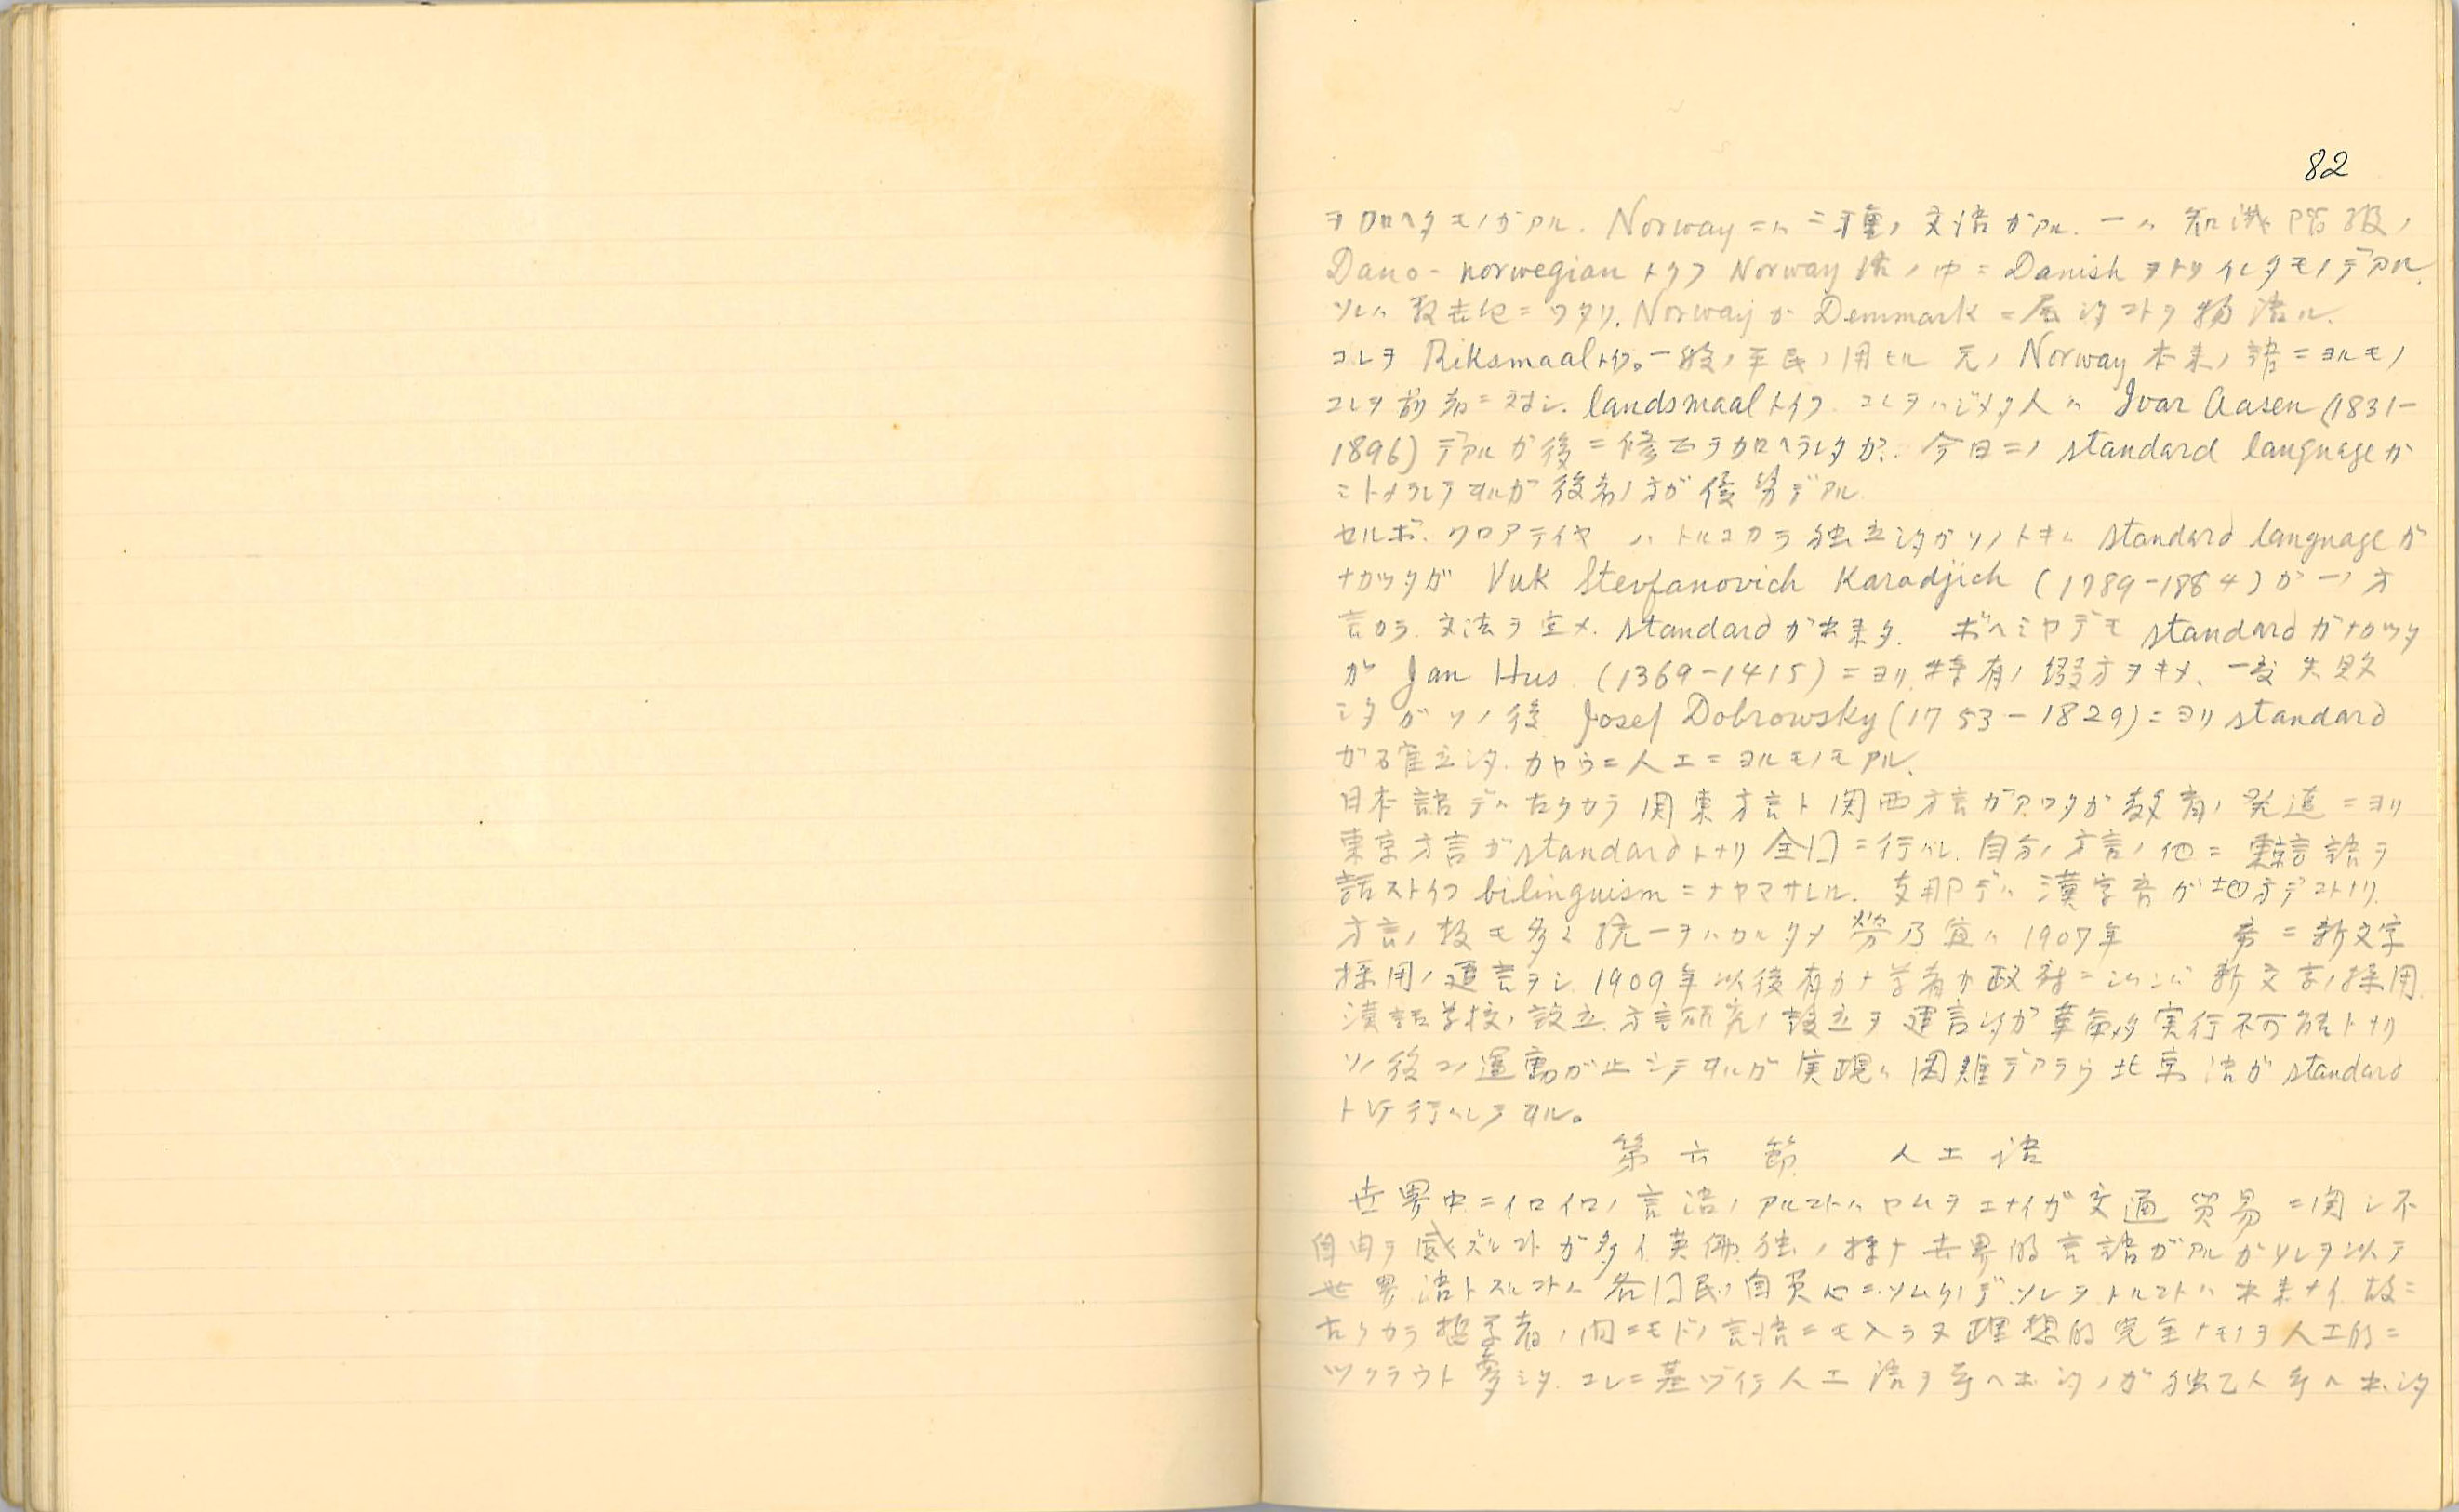 82
ヲ加ヘタモノガアル. Norwayニハ二種ノ文語ガアル. 一ハ知識階級ノ
Dano-norwegianトイフ Norway語ノ中ニ Danishヲトリイレタモノデアル.
ソレハ数世紀ニワタリ. Norwayガ Denmmarkニ属シタコトヲ物語ル.
コレヲ Riksmaalトイフ。一般ノ平民ノ用ヒル 元ノ Norway本来ノ語ニヨルモノ
コレヲ前者ニ対シ. landsmaalトイフ. コレヲハジメタ人ハ Ivar Aasen (1831-
1896)デアルガ後ニ修正ヲ加ヘラレタガ. 今日ニノ standard languageガ
ミトメラレテヰルガ後者ノ方ガ優勢デアル.
セルボ. クロアティヤ ハトルコカラ独立シタガソノトキハ standard languageガ
ナカツタガ Vuk Stevfanovich Karadjich (1789-1884)ガ一ノ方
言カラ. 文法ヲ定メ. standardガ出来タ. ボヘミヤデモ standardガナカツタ
ガ Jan Hus. (1369-1415)ニヨリ. 特有ノ綴方ヲキメ、一度失敗
シタガソノ後 Josef Dobrowsky (1753-1829)ニヨリ standard
ガ確立シタ. カヤウニ人工ニヨルモノモアル.
日本語デハ古クカラ関東方言ト関西方言ガアツタガ教育ノ発達ニヨリ
東京方言ガstandardトナリ全囗ニ行ハレ. 自分ノ方言ノ他ニ東京言語ヲ
話ストイフ bilinguismニナヤマサレル. 支那デハ漢字音ガ地方デコトナリ.
方言ノ数モ多ク統一ヲハカルタメ労乃宣ハ1907年 帝ニ新文字
採用ノ建言ヲシ. 1909年以後有力ナ学者ガ政府ニ新文字ノ採用.
漢語学校ノ設立. 方言研究ノ設立ヲ建言シタガ革命ノタメ実行不可能トナリ
ソノ後コノ運動ガ止シテヰルガ実現ハ困難デアラウ北京語ガ standard
トシテ行ハレテヰル。
第六節 人工語
世界中ニイロイロノ言語ノアルコトハヤムヲエナイガ交通貿易ニ関シ不
自由ヲ感ズルコトガ多イ英佛独ノ様ナ世界的言語ガアルガソレヲ以テ
世界語トスルコトハ各囗民ノ自負心ニソムクノデソレヲトルコトハ出来ナイ故ニ
古クカラ哲学者ノ間ニモドノ言語ニモ入ラヌ理想的完全ナモノヲ人工的ニ
ツクラウト夢ミタ. コレニ基ヅイテ人工語ヲ考ヘ出シタノガ独乙人考ヘ出シタ